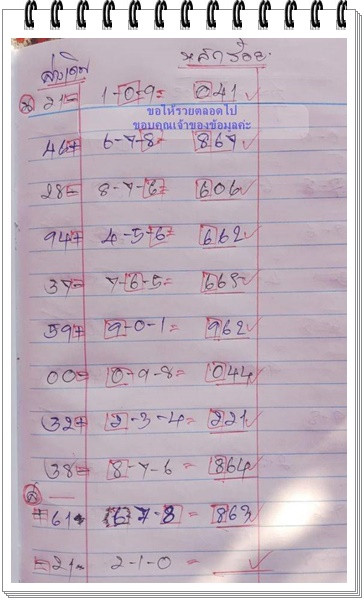 หลักร้อย
21= 1-0-9= 041 ✓
ขอให้รวยตลอดไป
ขอบคุณเจ้าของข้อมูลค่ะ
46= 6-7-8= 867 ✓
28= 8-7-6= 606 ✓
94= 4-5-6= 662 ✓
37= 7-6-5= 665 ✓
59= 9-0-1= 962 ✓
00= 0-9-8= 044 ✓
32= 2-3-4= 221 ✓
38= 8-7-6= 864 ✓
61= 6 7-8= 863 ✓
21= 2-1-0=